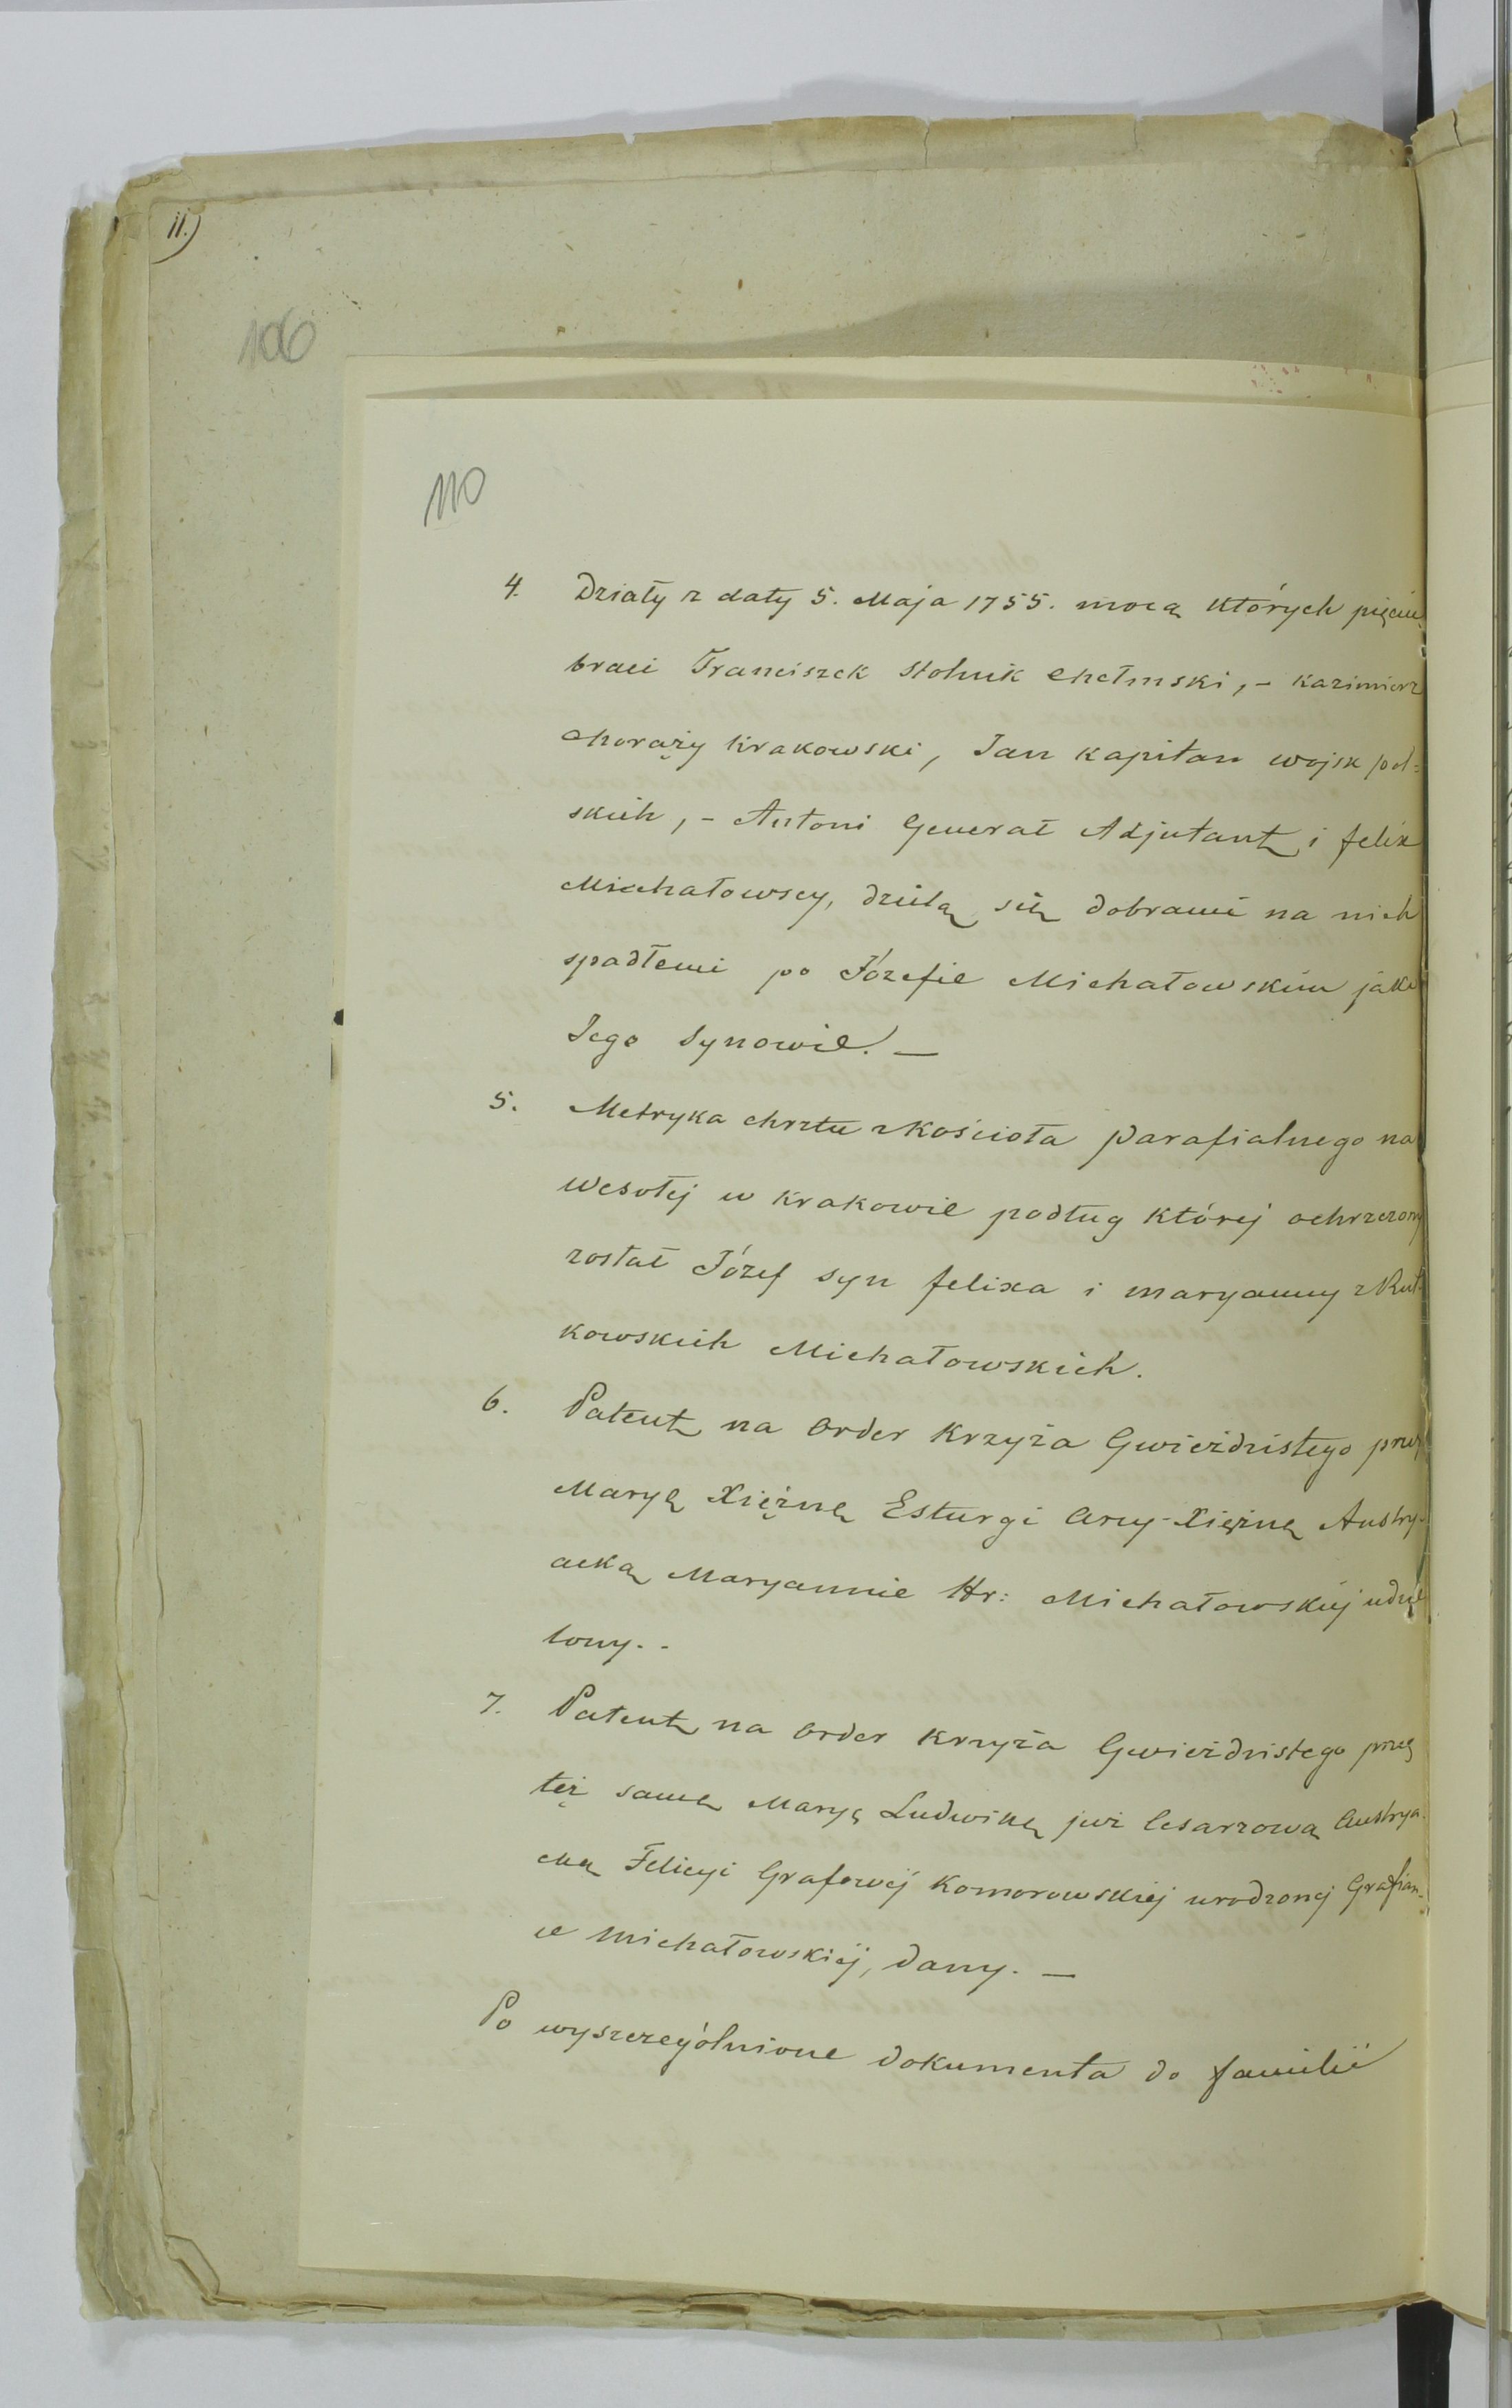 11.)
106
110
4. Działy z daty 5. Maja 1755. mocą których pięciu
braci Franciszek Stolnik Chełmski, – Kazimierz
Chorąży Krakowski, Jan Kapitan wojsk pol=
skich, – Antoni Generał Adjutant i felix
Michałowscy, dzielą się dobrami na nich
spadłemi po Józefie Michałowskim jako
Jego Synowie. –
5. Metryka chrztu z Kościoła Parafialnego na
Wesołej w Krakowie podług której ochrzczony
został Józef syn felixa i maryanny z Rut-
kowskich Michałowskich.
6. Patent na Order Krzyża Gwieździstego przez
Maryą Xiężnę Esturgi Arcy-Xiężnę Austry-
acką Maryannie Hr: Michałowskiej udzie
lony. -
7. Patent na order Krzyża Gwieździstego przez
też samą Maryą Ludwikę już Cesarzową Austrya-
cką Felicyi Grafowéj Komorowskiéj urodzonej Grafian-
ce Michałowskiéj, dany. –
Po wyszczególnione dokumenta do familii